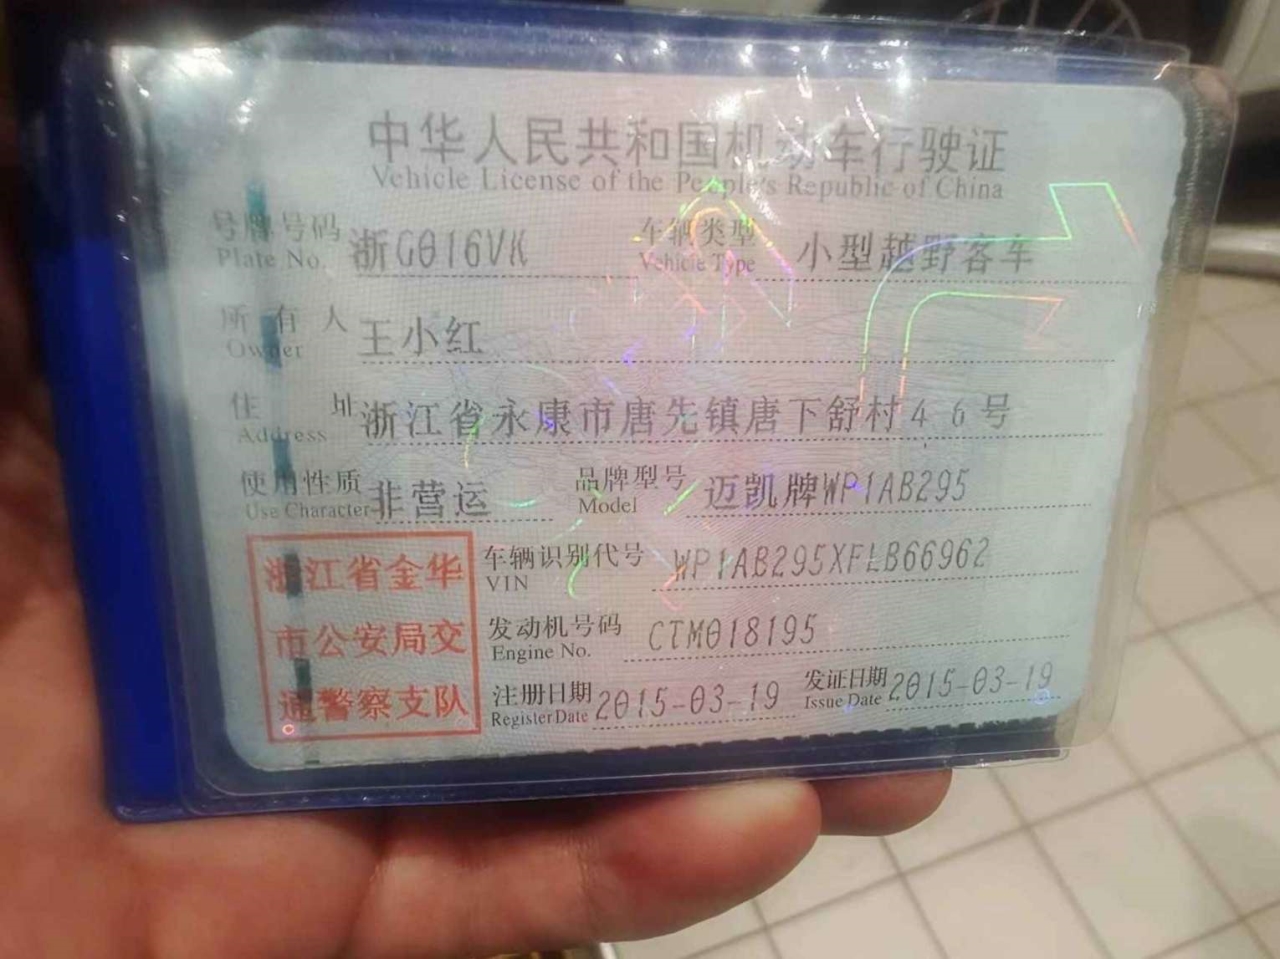 中华人民共和国机动车行驶证
Vehicle License of the People's Republic of China
号牌号码 浙G016VK 车辆类型 小型越野客车
Plate No. Vehicle Type
所有人 王小红
Owner
住址 浙江省永康市唐先镇唐下舒村46号
Address
使用性质 非营运 品牌型号 迈凯牌WP1AB295
Use Character Model
浙江省金华
市公安局交
通警察支队
车辆识别代号 WP1AB295XFLB66962
VIN
发动机号码 CTM018195
Engine No.
注册日期 2015-03-19 发证日期 2015-03-19
Register Date Issue Date